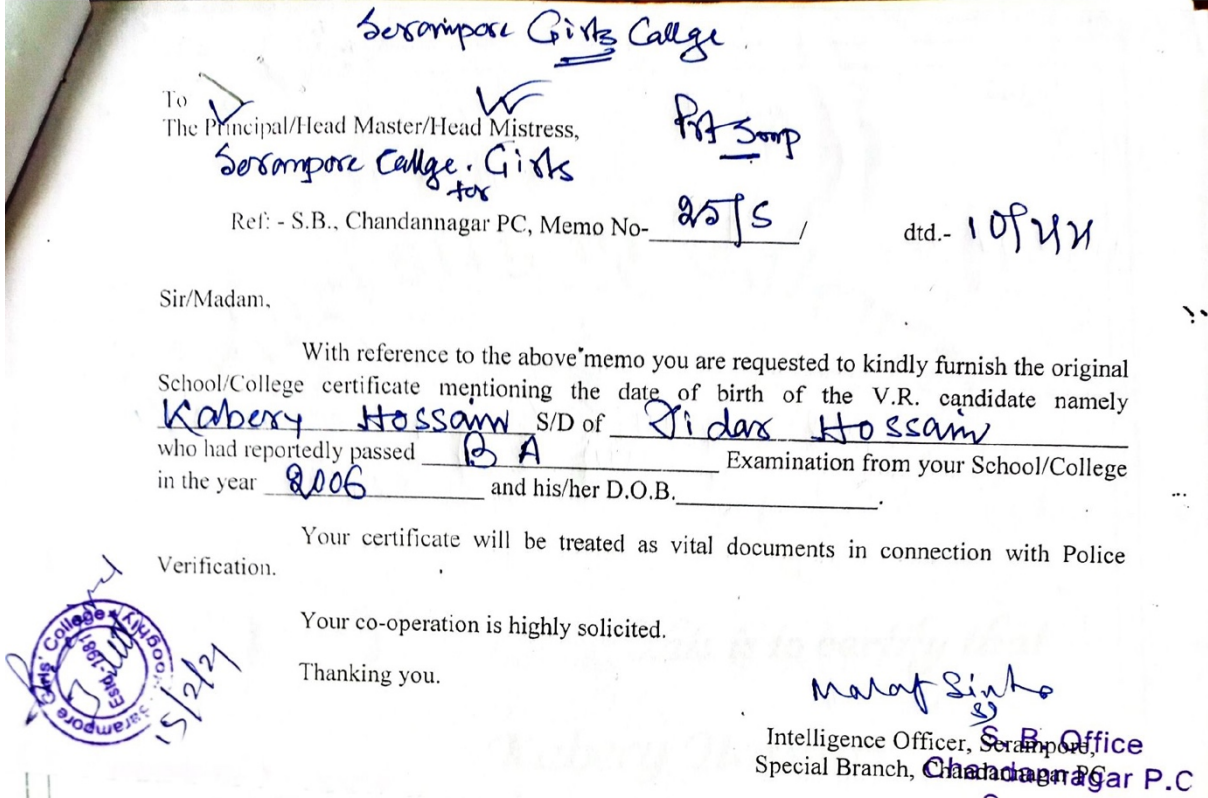 Serampore Girls Collge
To
The Principal/Head Master/Head Mistress,
Serampore Collge. Girls
for
Ref: - S.B., Chandannagar PC, Memo No- /
dtd.-
Sir/Madam,
With reference to the above memo you are requested to kindly furnish the original
School/College certificate mentioning the date of birth of the V.R. candidate namely
Kabery Hossain S/D of Didar Hossain
who had reportedly passed B A Examination from your School/College
in the year 2006 and his/her D.O.B. .
Your certificate will be treated as vital documents in connection with Police
Verification.
Your co-operation is highly solicited.
Thanking you.
Serampore Girls' College Hooghly
Estd.-1981
15/2/21
Intelligence Officer, Serampore,
Special Branch, Chandannagar PC
S. B. Office
Chandannagar P.C